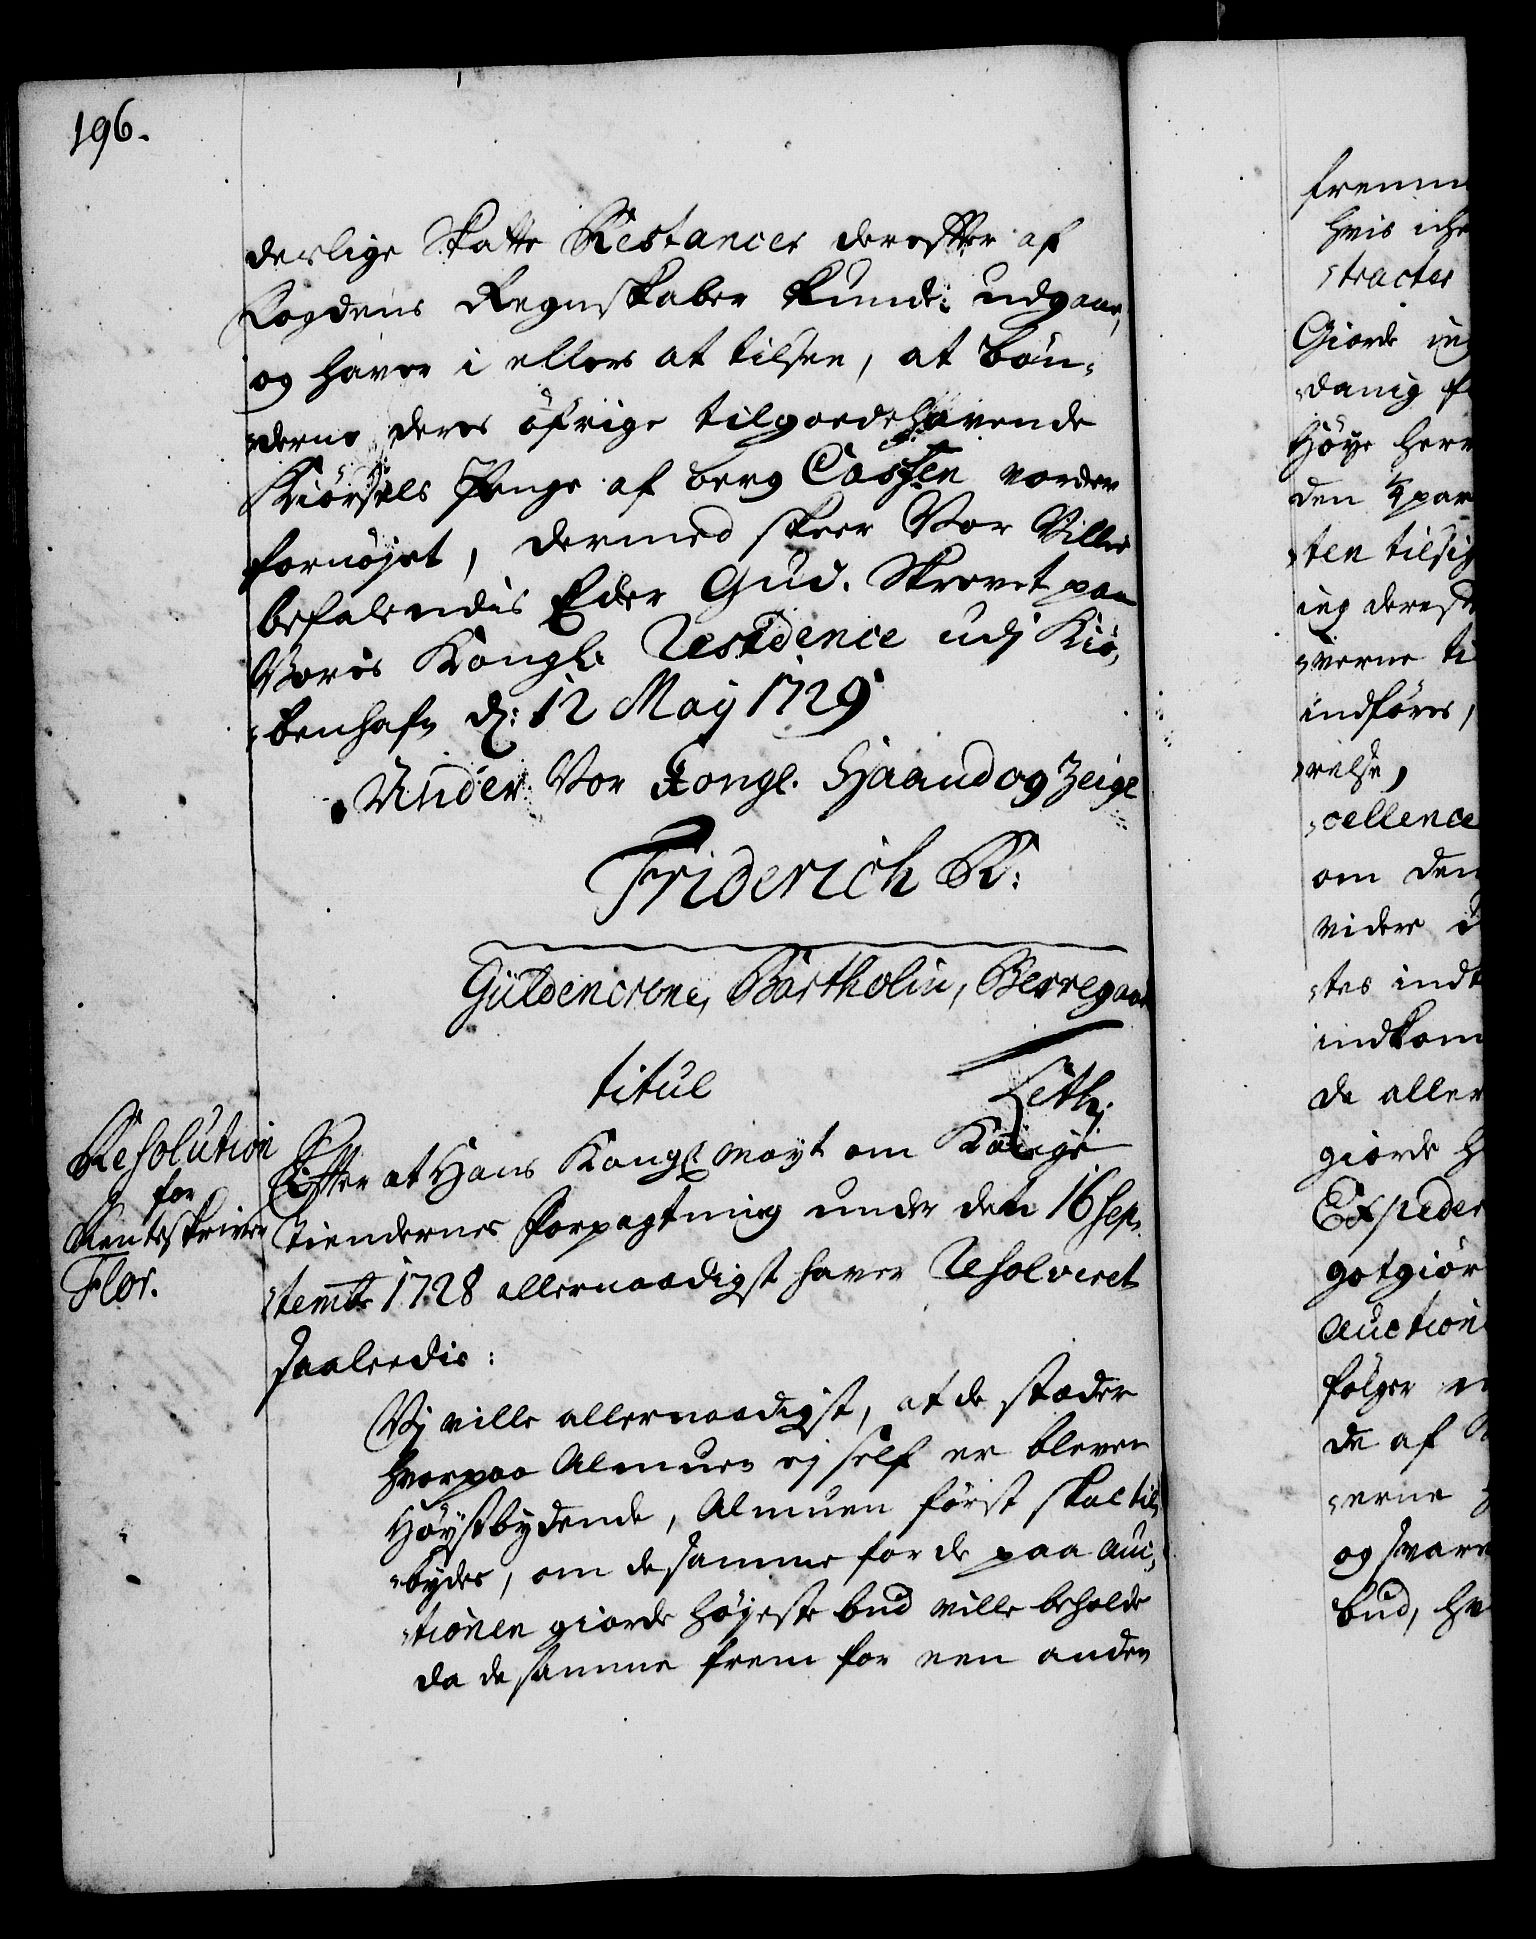 196.
derlige Skatte Restancer derefter af
Fogdens Regnskaber kunde udgaae,
og haver i ellers at tilsee, at bøn¬
derne deres øfrige tilgoedehavende
Kiørsels Penge af berg Cassen vorder
fornøyet, dermed skeer Vor Villie
befalendis Eder Gud. Skrevet paa
Vores Kongl. Residence udj Kiø¬
benhafn d: 12 Maij 1729
Under Vor Kongl. Haand og Zeigl
Friderich R:
Güldencrone, Bartholin, Berregaar
titul
Lēth
Resolution
for
Renteskriver
Flor.
Efter at Hans Kongl Mayt om Konge
tiendernes forpagtning under den 16 Sep¬
temb 1728 allernaadigst haver Resolveret
saaleedis:
Vj ville allernaadigst, at de stæder
hvorpaa Almuen ej self er bleven
Høystbydende, Almuen først skal til¬
bydes, om de samme for de paa Auc¬
tionen giorde høyeste bud ville beholde
da de samme frem for een anden
fremm
hvis iche
tractes
Giorde
danig
Høye herr
den ¼ par
ten tilsig
ieg dereft
verne ti
indføres,
relse,
cellence
om den
videre
tes indt
indkom
de aller
giorde
Expeder
gotgiør
Auction
følger
de af
erne
og svare
bud, hv